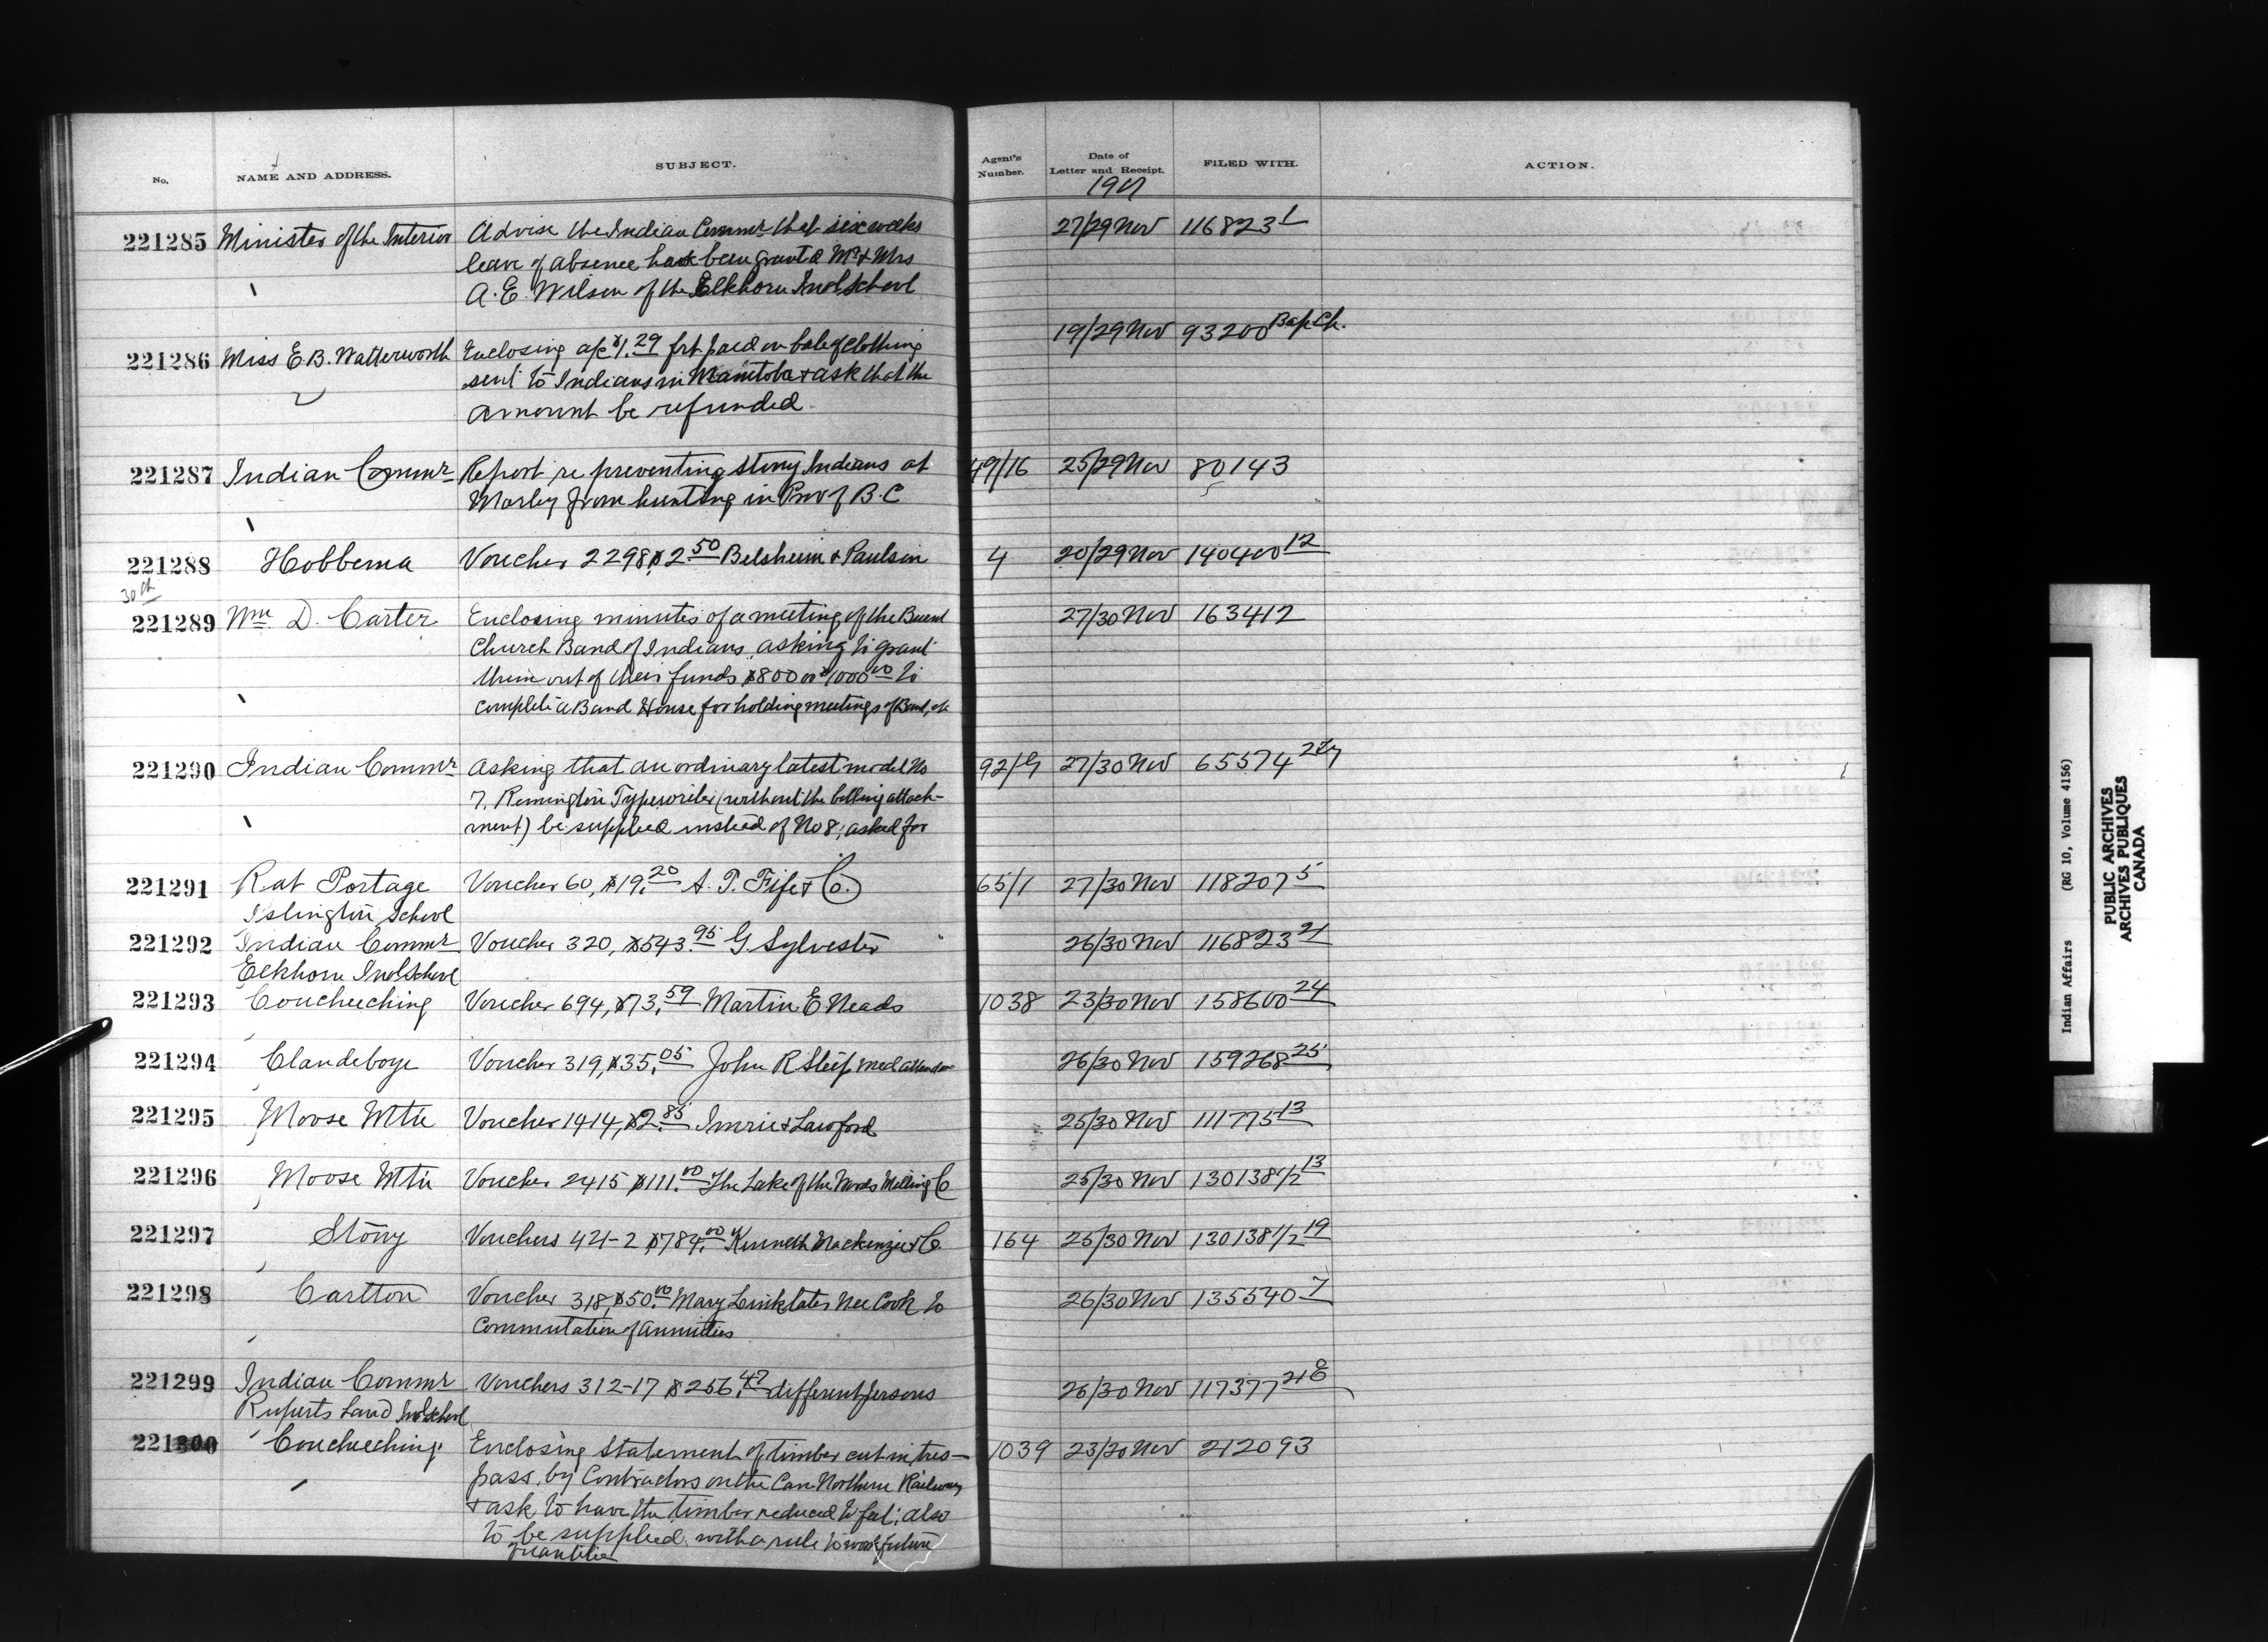 No. NAME AND ADDRESS. SUBJECT. Agent's Number. Date of Letter and Receipt. FILED WITH. ACTION.
1901
221285 Minister of the Interior Advise the Indian Commr that six weeks 27/29 Nov 116823 1
leave of absence has been granted Mr & Mrs
A. E. Wilson of the Elkhorn Indl School
221286 Miss E. B. Watterworth Enclosing a/c $1.29 frt paid on bale of clothing 19/29 Nov 93200 Bap Ch.
sent to Indians in Manitoba & ask that the
amount be refunded.
221287 Indian Commr Report re preventing Stony Indians at 49/16 25/29 Nov 80143
Morley from hunting in Prov of B.C
221288 Hobbema Voucher 2298 $2.50 Belsheim & Paulson 4 20/29 Nov 140400 12
30th
221289 Wm D. Carter Enclosing minutes of a meeting of the 27/30 Nov 163412
Church Band of Indians, asking to grant
them out of their funds $800 or $1000.00 to
complete a Band House for holding meetings of Band, etc
221290 Indian Commr Asking that an ordinary latest model No 92/G 27/30 Nov 65574
7, Remington Typewriter (without the billing attach-
ment) be supplied instead of No 8, asked for
221291 Rat Portage Voucher 60, $19.20 A. T. Fife & Co. 65/1 27/30 Nov 118207 5
Islington School
221292 Indian Commr Voucher 320, $543.95 G. Sylvester 26/30 Nov 116823 21
Elkhorn Indl School
221293 Coucheeching Voucher 694, $73.59 Martin E Neads 1038 23/30 Nov 158600 24
221294 Clandeboye Voucher 319, $35.05 John R Steep med attendance 26/30 Nov 159268 25
221295 Moose Mtn Voucher 1414, $2.85 Imrie & Lawford 25/30 Nov 111775 13
221296 Moose Mtn Voucher 2415 $111.00 The Lake of the Woods Milling Co 25/30 Nov 130138 1/2 13
221297 Stony Vouchers 421-2 $784.00 Kenneth Mackenzie & Co. 164 25/30 Nov 130138 1/2 19
221298 Carlton Voucher 318, $50.00 Mary Linklater nee Cook to 26/30 Nov 135540 7
commutation of annuities
221299 Indian Commr Vouchers 312-17 $256.47 different persons 26/30 Nov 117377
Ruperts Land Indl School
221300 Coucheeching Enclosing statement of timber cut in tres- 1039 23/30 Nov 212093
pass, by Contractors on the Can Northern Railway
& ask to have the timber reduced to feet; also
to be supplied with a rule to work future
quantities
Indian Affairs (RG 10, Volume 4156)
PUBLIC ARCHIVES
ARCHIVES PUBLIQUES
CANADA